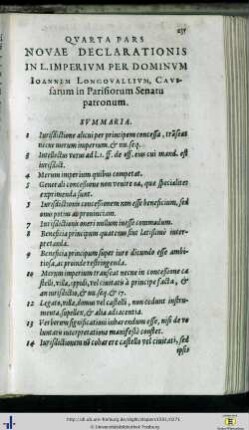 237
QVARTA PARS
NOVAE DECLARATIONIS
IN L. IMPERIVM PER DOMINVM
IOANNEM LONGOVALLIVM, CAVS-
sarum in Parisiorum Senatu
patronum.
SVMMARIA.
1 Iurisdictione alicui per principem concessa, trãseat
necne merum imperium. & nu. seq.
Intellectus verus ad l. 1. ff. de off. eius cui mand. est
iurisdict.
4 Merum imperium quibus competat.
5 Generali concessione non venire ea, quæ specialiter
exprimenda sunt.
Iurisdictionis concessionem non esse beneficium, sed
onus potius ac prouinciam.
7 Iurisdictionis oneri nullum inesse commodum.
8 Beneficia principum quatenus sint latissimè inter-
pretanda.
9 Beneficia principum super iure dicundo esse ambi-
tiosa, ac proinde restringenda.
10 Merum imperium transeat necne in concessione ca
stelli, villæ, oppidi, vel ciuitatis à principe facta, &
an iurisdictio, & nu. seq. & 17.
12 Legato, villa, domus vel castelli, non cedunt instru-
menta, supellex, & alia adiacentia.
13 Verborum significationi inhærendum esse, nisi de vo
luntatis interpretatione manifestè constet.
14 Iurisdictionem nō cohærere castello vel ciuitati, sed
ipso
© Universitätsbibliothek Freiburg